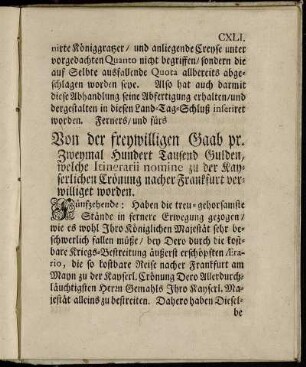 CXLI.
nirte Königgratzer/ und anliegende Creyse unter
vorgedachten Quanto nicht begriffen/ sondern die
auf Selbte ausfallende Quota allbereits abge-
schlagen worden seye. Also hat auch darmit
diese Abhandlung seine Abfertigung erhalten/ und
dergestalten in diesen Land-Tag-Schluß inseriret
worden. Ferners/ und fürs
Von der freywilligen Gaab pr.
Zweymal Hundert Tausend Gulden,
welche Itinerarii nomine zu der Kay-
serlichen Crönung nacher Franckfurt ver-
williget worden.
Fünfzehende: Haben die treu-gehorsamste
Stände in fernere Erwegung gezogen/
wie es wohl Ihro Königlichen Majestät sehr be-
schwerlich fallen müße/ bey Dero durch die kost-
bare Kriegs-Bestreitung äußerst erschöpften Æra-
rio, die so kostbare Reise nacher Franckfurt am
Mayn zu der Kayserl. Crönung Dero Allerdurch-
läuchtigsten Herrn Gemahls Ihro Kayserl. Ma-
jestät alleins zu bestreiten. Dahero haben Diesel-
be